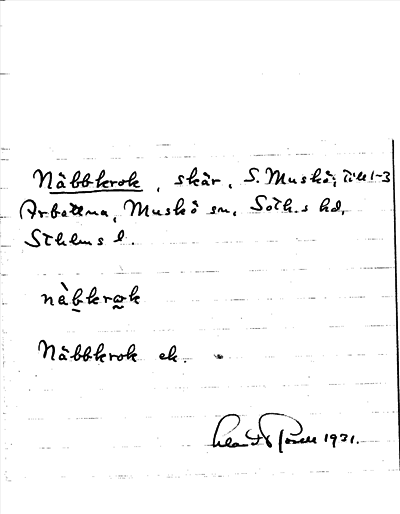 Näbbkrok, skär, S. Muskö, till 1-3
Arbottna, Muskö sn, Soth.s hd,
Sthlms l.
nàbkrok
Näbbkrok ek.
1931.